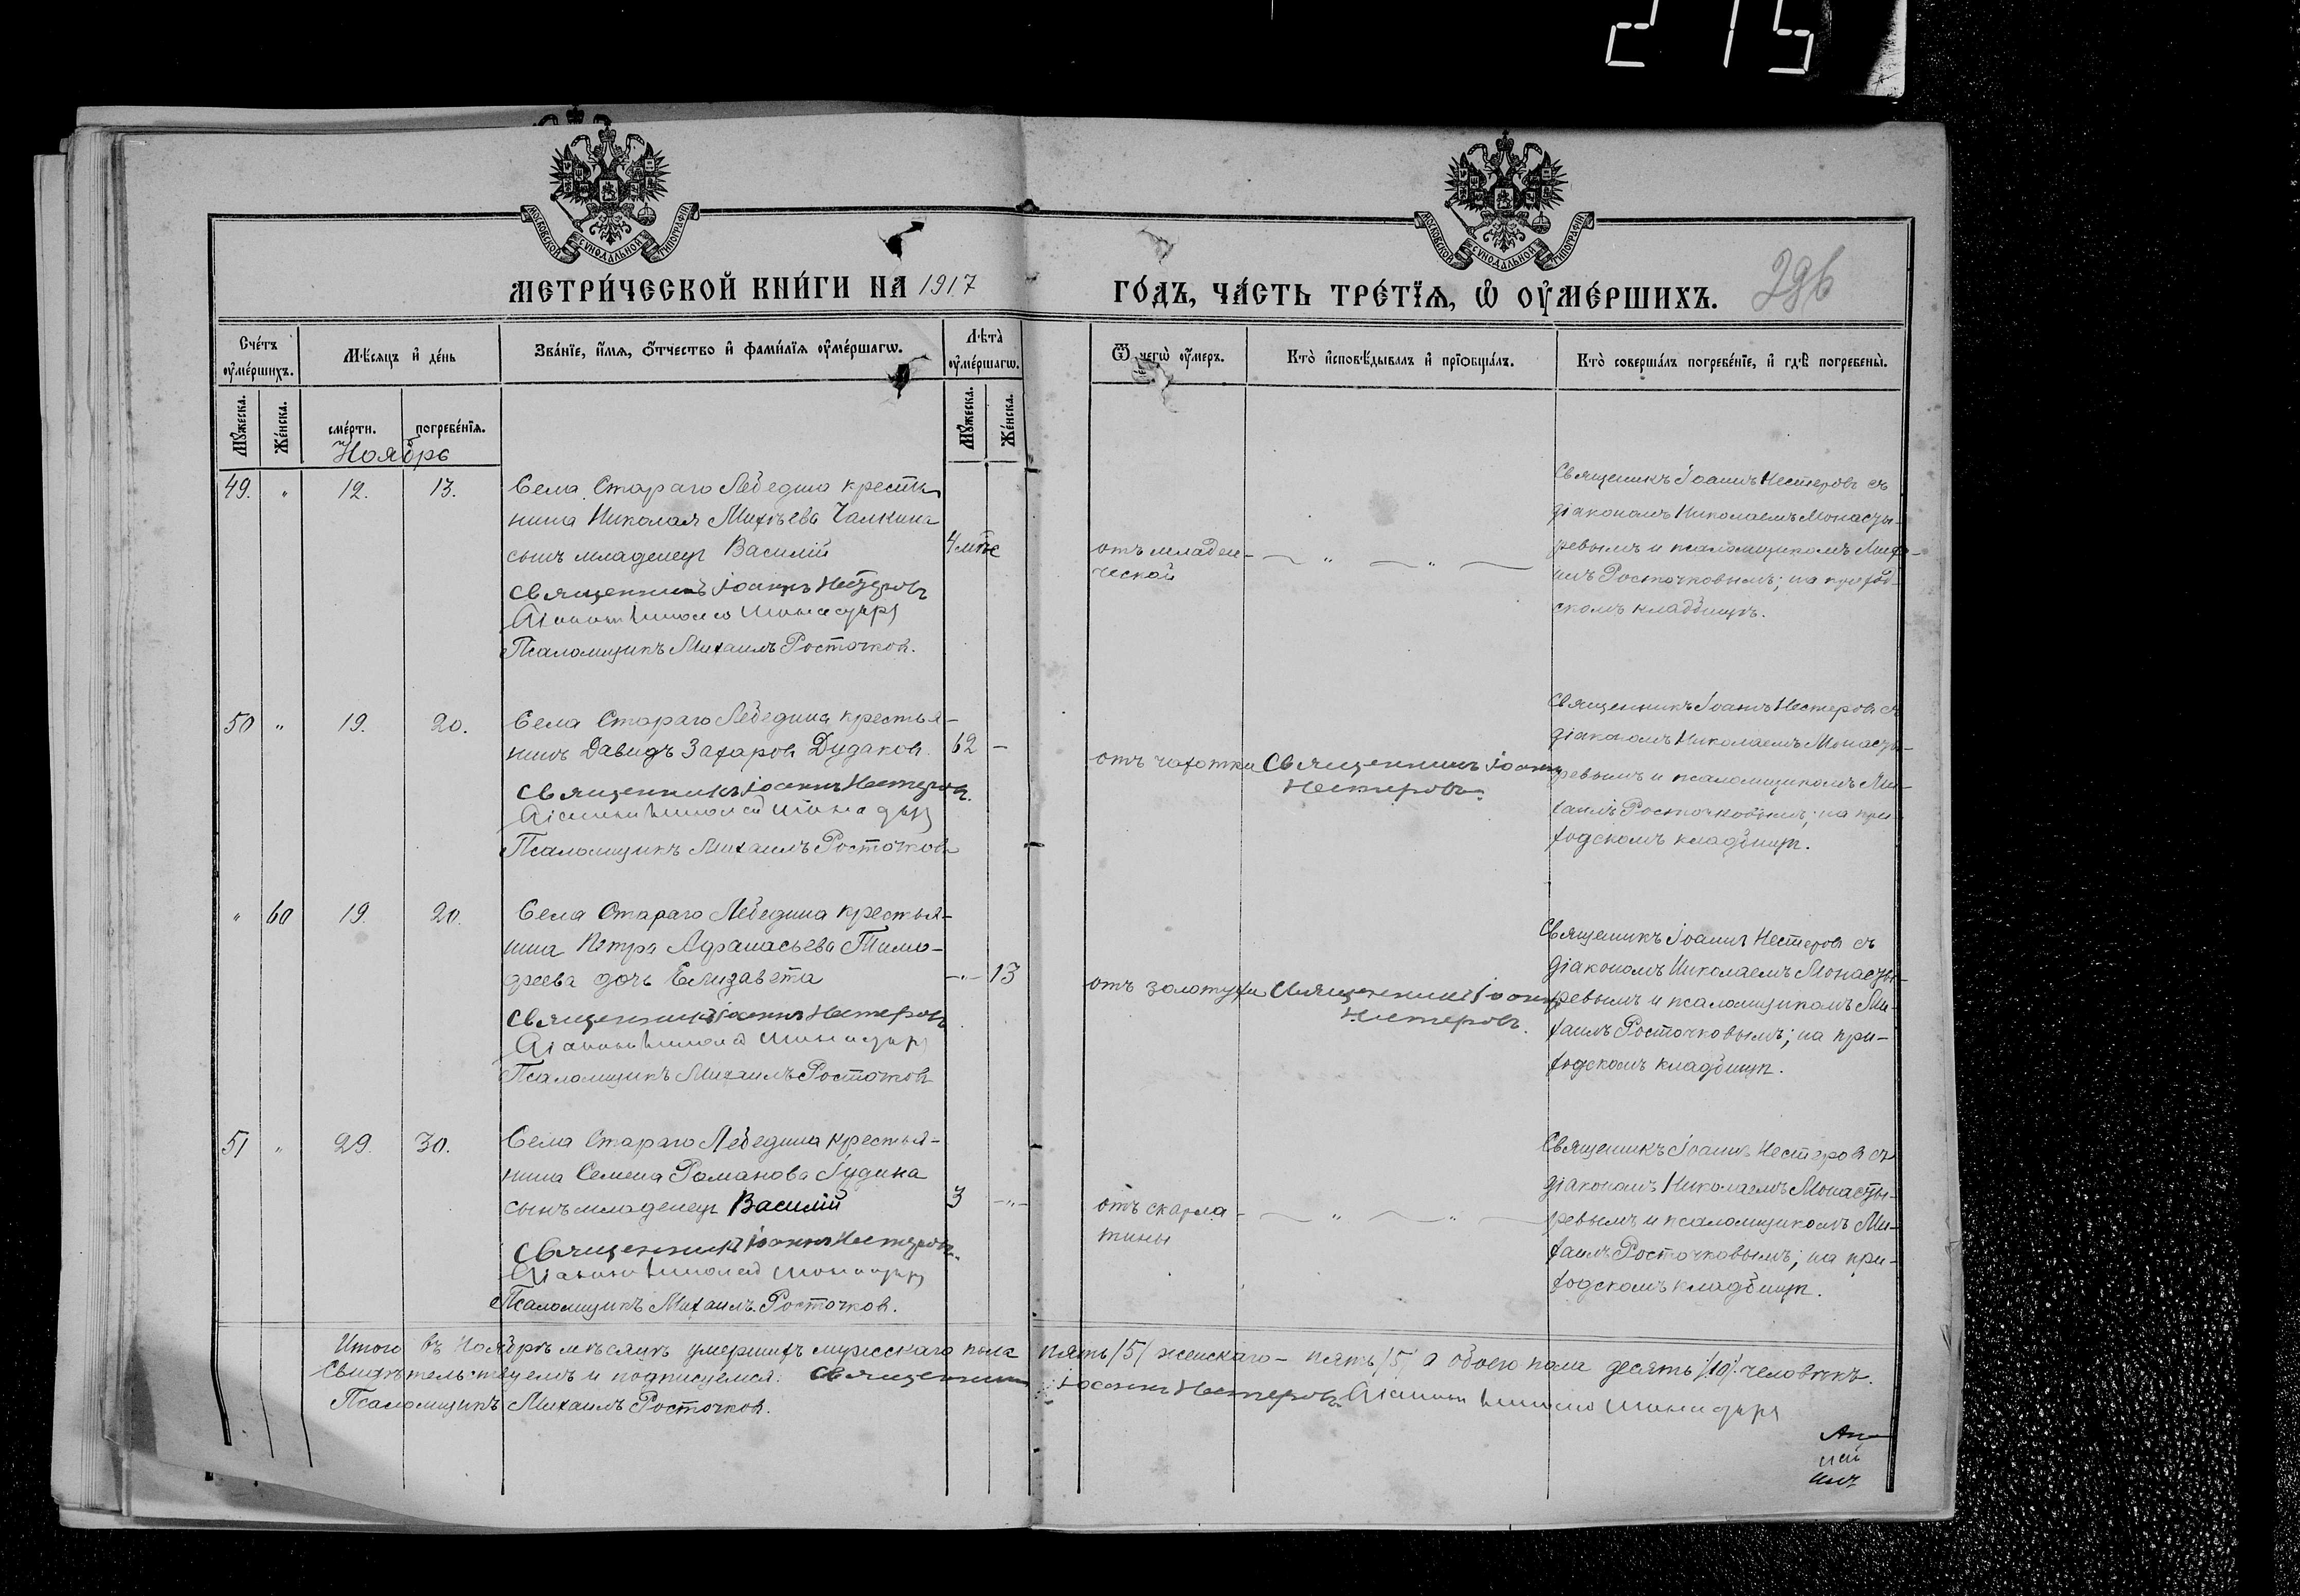 215
МОСКОВСКОЙ СѴНОДАЛЬНОЙ ТИПОГРАФІИ
МОСКОВСКОЙ СѴНОДАЛЬНОЙ ТИПОГРАФІИ
МЕТРИ́ЧЕСКОЙ КНИ́ГИ НА 1917 ГО́ДЪ, ЧА́СТЬ ТРЕ́ТІѦ, Ѽ ОУ҆МЕ́РШИХЪ.
Сче́тъ оу҆ме́ршихъ.
Мѣ́сяцъ и҆ де́нь
Зва́нїе, и҆́мѧ, ѻ҆́тчество и҆ фами́лїѧ оу҆ме́ршагѡ.
Лѣ́та оу҆ме́ршагѡ.
Ѿ чегѡ̀ оу҆́меръ.
Кто̀ и҆сповѣ́дывалъ и҆ прїѡбща́лъ.
Кто̀ соверша́лъ погребе́нїе, и҆ гдѣ̀ погребены̀.
Мꙋ́жеска. Же́нска. сме́рти. погребе́нїѧ. Мꙋ́жеска. Же́нска.
Ноябрь
49. " 12. 13.
Села Стараго Лебедина крестья
нина Николая Михѣева Чалкина
сынъ младенецъ Василій
4 мѣс
Священникъ Іоаннъ Нестеровъ
Псаломщикъ Михаилъ Росточков.
отъ младен-
ческой
Священникъ Іоаннъ Нестеровъ съ
діакономъ Николаемъ Монасты-
ревымъ и псаломщикомъ Миха-
иломъ Росточковымъ; на приход-
скомъ кладбищѣ.
50 " 19. 20.
Села Стараго Лебедина крестья-
нинъ Давидъ Захаров Дудаков.
62 -
Священникъ Іоаннъ Нестеровъ.
Псаломщикъ Михаилъ Росточковъ
отъ чахотки
Священникъ Іоаннъ
Нестеровъ.
Священникъ Іоаннъ Нестеровъ съ
діакономъ Николаемъ Монасты-
ревымъ и псаломщикомъ Ми-
хаилъ Росточковымъ; на при-
ходскомъ кладбищѣ.
" 60 19. 20.
Села Стараго Лебедина крестья-
нина Петра Афанасьева Тимо-
феева дочь Елизавета
-"- 13
Священникъ Іоаннъ Нестеровъ
Псаломщикъ Михаилъ Росточковъ
отъ золотухи
Священникъ Іоаннъ
Нестеровъ.
Священникъ Іоаннъ Нестеровъ съ
діакономъ Николаемъ Монасты-
ревымъ и псаломщикомъ Ми-
хаилъ Росточковымъ; на при-
ходскомъ кладбищѣ.
51 " 29. 30.
Села Стараго Лебедина крестья-
нина Семена Романова Гудина
сынъ младенецъ Василій
3 -"-
Священникъ Іоаннъ Нестеровъ.
Псаломщикъ Михаилъ Росточков.
отъ скарла-
тины
Священникъ Іоаннъ Нестеровъ съ
діакономъ Николаемъ Монасты-
ревымъ и псаломщикомъ Ми-
хаилъ Росточковымъ; на при-
ходскомъ кладбищѣ.
Итого въ Ноябрѣ мѣсяцѣ умершихъ мужескаго пола пять /5/ женскаго - пять /5/ а обоего пола десять /10/ человѣкъ.
Свидѣтельствуемъ и подписуемся: Священникъ Іоаннъ Нестеровъ
Псаломщикъ Михаилъ Росточков.